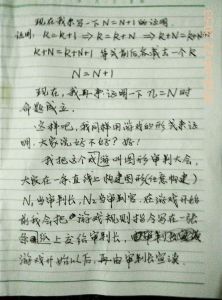 现在我来写一下N=N+1的证明.
证明: K=K+1 ⇒ K=K+N ⇒ K+N=K+N+N
K+N=K+N+1 等式都后都减去一个K
N=N+1
现在, 我再来证明一下 n=N 时
命题成立.
这样吧, 我同样用游戏的形式来证
明. 大家说好不好? 好!
我把这个游戏叫图形审判大会,
大家在一条直线上构建图形(任意构建)
N₁当审判长, N₂当审判官. 在游戏开始
前我会把游戏规则指令写在一张
纸上交给审判长,
游戏开始以后, 再由审判长宣读.